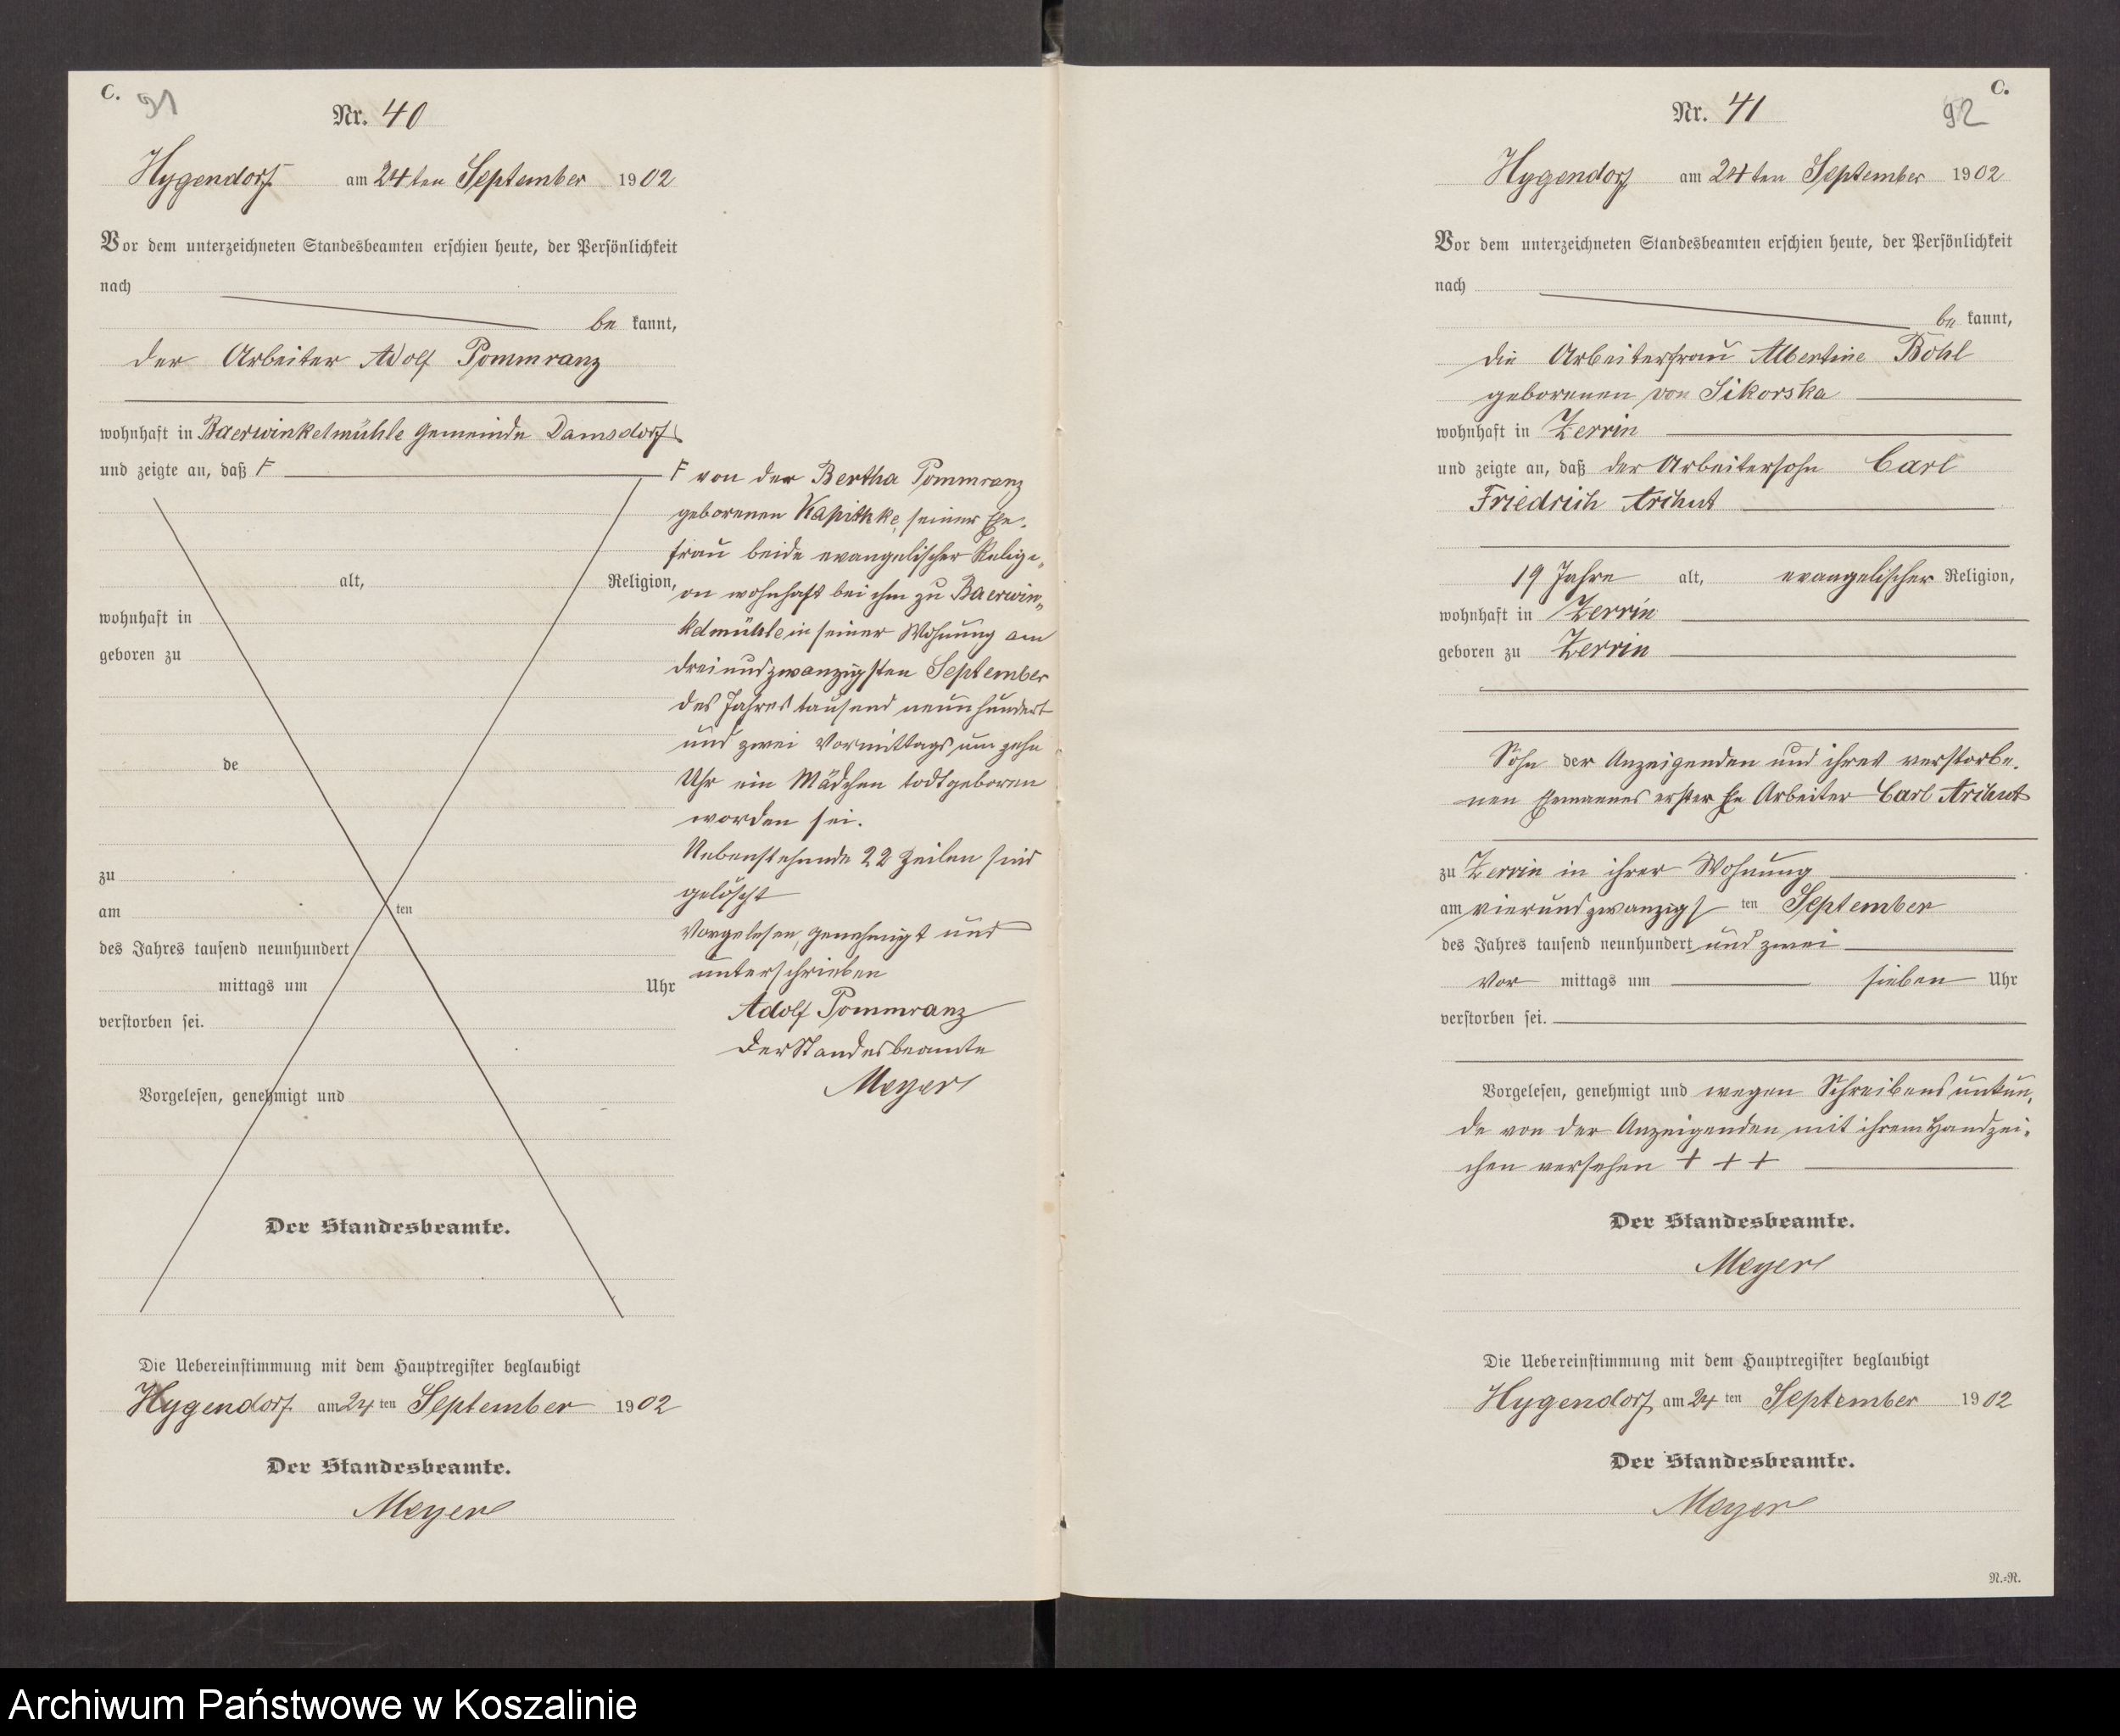 C. 91
Nr. 40
Hygendorf am 24ten September 1902
Vor dem unterzeichneten Standesbeamten erschien heute, der Persönlichkeit
nach
be kannt,
der Arbeiter Adolf Pommranz
wohnhaft in Baerwinkelmühle Gemeinde Damsdorf
und zeigte an, daß F
alt, Religion,
wohnhaft in
geboren zu
de
zu
am ten
des Jahres tausend neunhundert
mittags um Uhr
verstorben sei.
Vorgelesen, genehmigt und
Der Standesbeamte.
F von der Bertha Pommranz
geborenen Kapithke, seiner Ehe-
frau beide evangelischer Religi-
on wohnhaft bei ihm zu Baerwin-
kelmühle in seiner Wohnung am
dreiundzwanzigsten September
des Jahres tausend neunhundert
und zwei Vormittags um zehn
Uhr ein Mädchen todtgeboren
worden sei.
Nebenstehende 22 Zeilen sind
gelöscht
Vorgelesen, genehmigt und
unterschrieben
Adolf Pommranz
Der Standesbeamte
Meyer
Die Uebereinstimmung mit dem Hauptregister beglaubigt
Hygendorf am 24 ten September 1902
Der Standesbeamte.
Meyer
C.
Nr. 41 92
Hygendorf am 24ten September 1902
Vor dem unterzeichneten Standesbeamten erschien heute, der Persönlichkeit
nach
be kannt,
die Arbeiterfrau Albertine Böhl
geborenen von Sikorska
wohnhaft in Zerrin
und zeigte an, daß der Arbeitersohn Carl
Friedrich Arihnt
19 Jahre alt, evangelischer Religion,
wohnhaft in Zerrin
geboren zu Zerrin
Sohn der Anzeigenden und ihres verstorbe-
nen Ehemannes erster Ehe Arbeiter Carl Arihnt
zu Zerrin in ihrer Wohnung
am vierundzwanzigs ten September
des Jahres tausend neunhundert und zwei
Vor mittags um sieben Uhr
verstorben sei.
Vorgelesen, genehmigt und wegen Schreibensunkun-
de von der Anzeigenden mit ihrem Handzei-
chen versehen + + +
Der Standesbeamte.
Meyer
Die Uebereinstimmung mit dem Hauptregister beglaubigt
Hygendorf am 24 ten September 1902
Der Standesbeamte.
Meyer
N.=R.
Archiwum Państwowe w Koszalinie